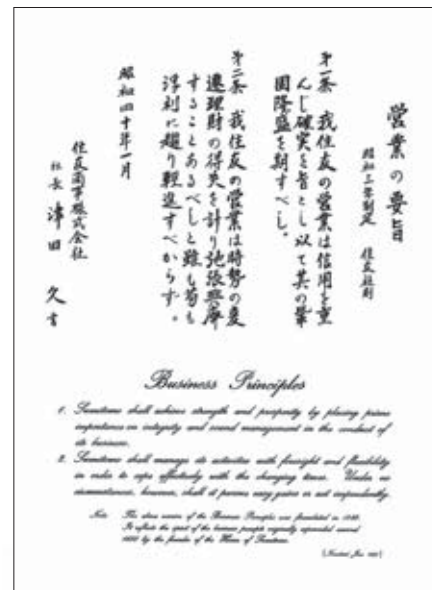 営業の要旨
昭和三年制定 住友社則
第一条 我住友の営業は信用を重
んじ確実を旨とし以て其の鞏
固隆盛を期すべし。
第二条 我住友の営業は時勢の変
遷理財の得失を計り弛張興廃
することあるべしと雖も苟も
浮利に趨り軽進すべからず。
昭和四十年一月
住友商事株式会社
社長 津田 久
Business Principles
1. Sumitomo shall achieve strength and prosperity by placing prime
importance on integrity and sound management in the conduct of
its business.
2. Sumitomo shall manage its activities with foresight and flexibility
in order to cope effectively with the changing times. Under no
circumstances, however, shall it pursue easy gains or act imprudently.
Note The above version of the Business Principles was formulated in 1928.
It reflects the spirit of the business precepts originally expounded around
1650 by the founder of the House of Sumitomo.